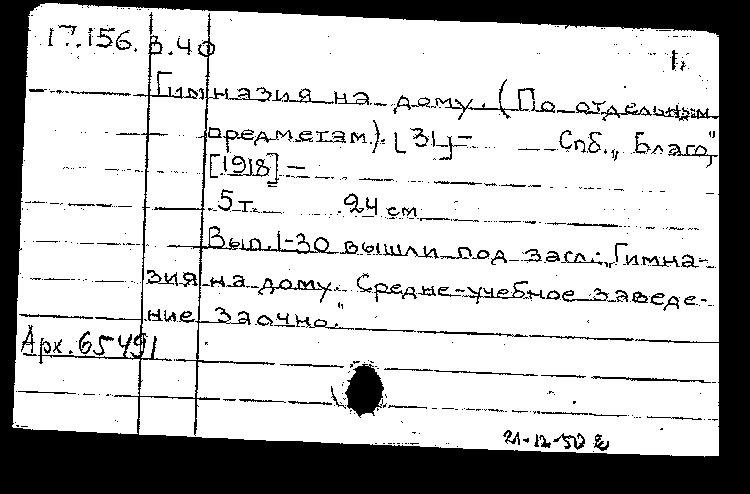 17.156.3.40
1.
Гимназия на дому. (По отдельным
предметам). [31] – Спб., „Благо",
[1918] –
5 т. 24 см.
Вып. 1-30 вышли под загл.: „Гимна-
зия на дому. Средне-учебное заведе-
ние заочно."
Арх. 65491
21-12-50